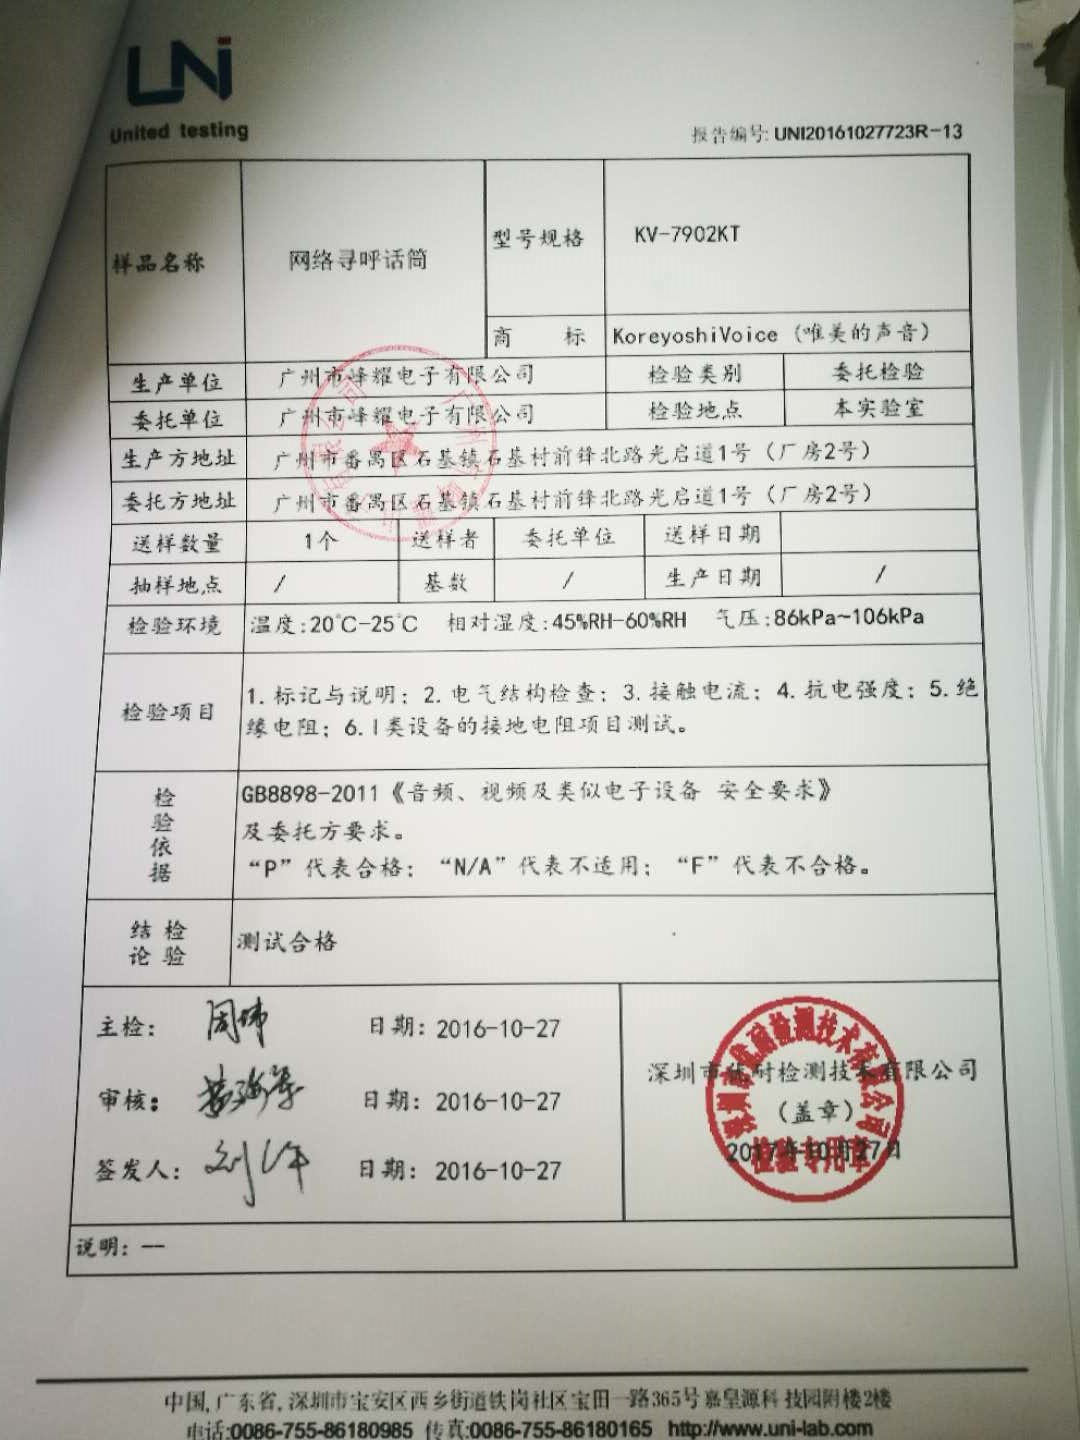 UNi
United testing
报告编号: UNI20161027723R-13
样品名称 网络寻呼话筒 型号规格 KV-7902KT
商 标 KoreyoshiVoice (唯美的声音)
生产单位 广州市峰耀电子有限公司 检验类别 委托检验
委托单位 广州市峰耀电子有限公司 检验地点 本实验室
生产方地址 广州市番禺区石基镇石基村前锋北路光启道1号 (厂房2号)
委托方地址 广州市番禺区石基镇石基村前锋北路光启道1号 (厂房2号)
送样数量 1个 送样者 委托单位 送样日期
抽样地点 / 基数 / 生产日期 /
检验环境 温度:20℃-25℃ 相对湿度:45%RH-60%RH 气压:86kPa~106kPa
检验项目 1.标记与说明; 2.电气结构检查; 3.接触电流; 4.抗电强度; 5.绝
缘电阻; 6.I类设备的接地电阻项目测试。
检验依据 GB8898-2011《音频、视频及类似电子设备 安全要求》
及委托方要求。
“P”代表合格; “N/A”代表不适用; “F”代表不合格。
结论 检验 测试合格
主检: 日期: 2016-10-27
审核: 日期: 2016-10-27
签发人: 日期: 2016-10-27
深圳市优耐检测技术有限公司
(盖章)
2017年10月27日
检验专用章
说明: --
中国,广东省,深圳市宝安区西乡街道铁岗社区宝田一路365号嘉皇源科技园附楼2楼
电话:0086-755-86180985 传真:0086-755-86180165 http://www.uni-lab.com